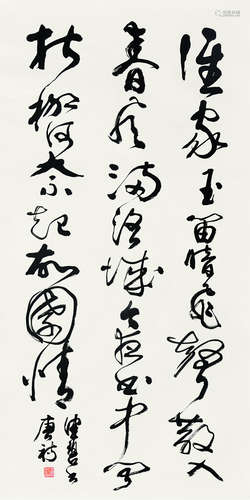 誰家玉笛暗飛聲散入
春風滿洛城今夜曲中聞
折柳何人不起故園情
唐詩